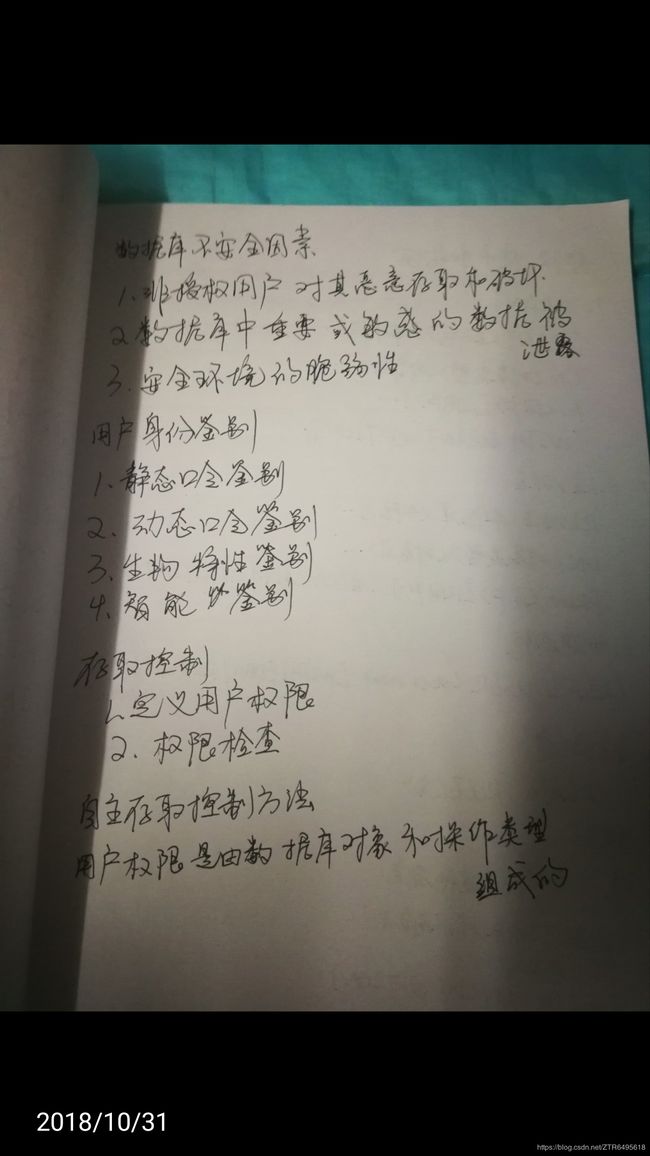 数据库不安全因素
1.非授权用户对其恶意存取和破坏.
2.数据库中重要或敏感的数据被
泄露
3.安全环境的脆弱性
用户身份鉴别
1.静态口令鉴别
2.动态口令鉴别
3.生物特性鉴别
4.智能 鉴别
存取控制
1.定义用户权限
2.权限检查
自主存取控制方法
用户权限是由数据库对象和操作类型
组成的
2018/10/31
https://blog.csdn.net/ZTR6495618